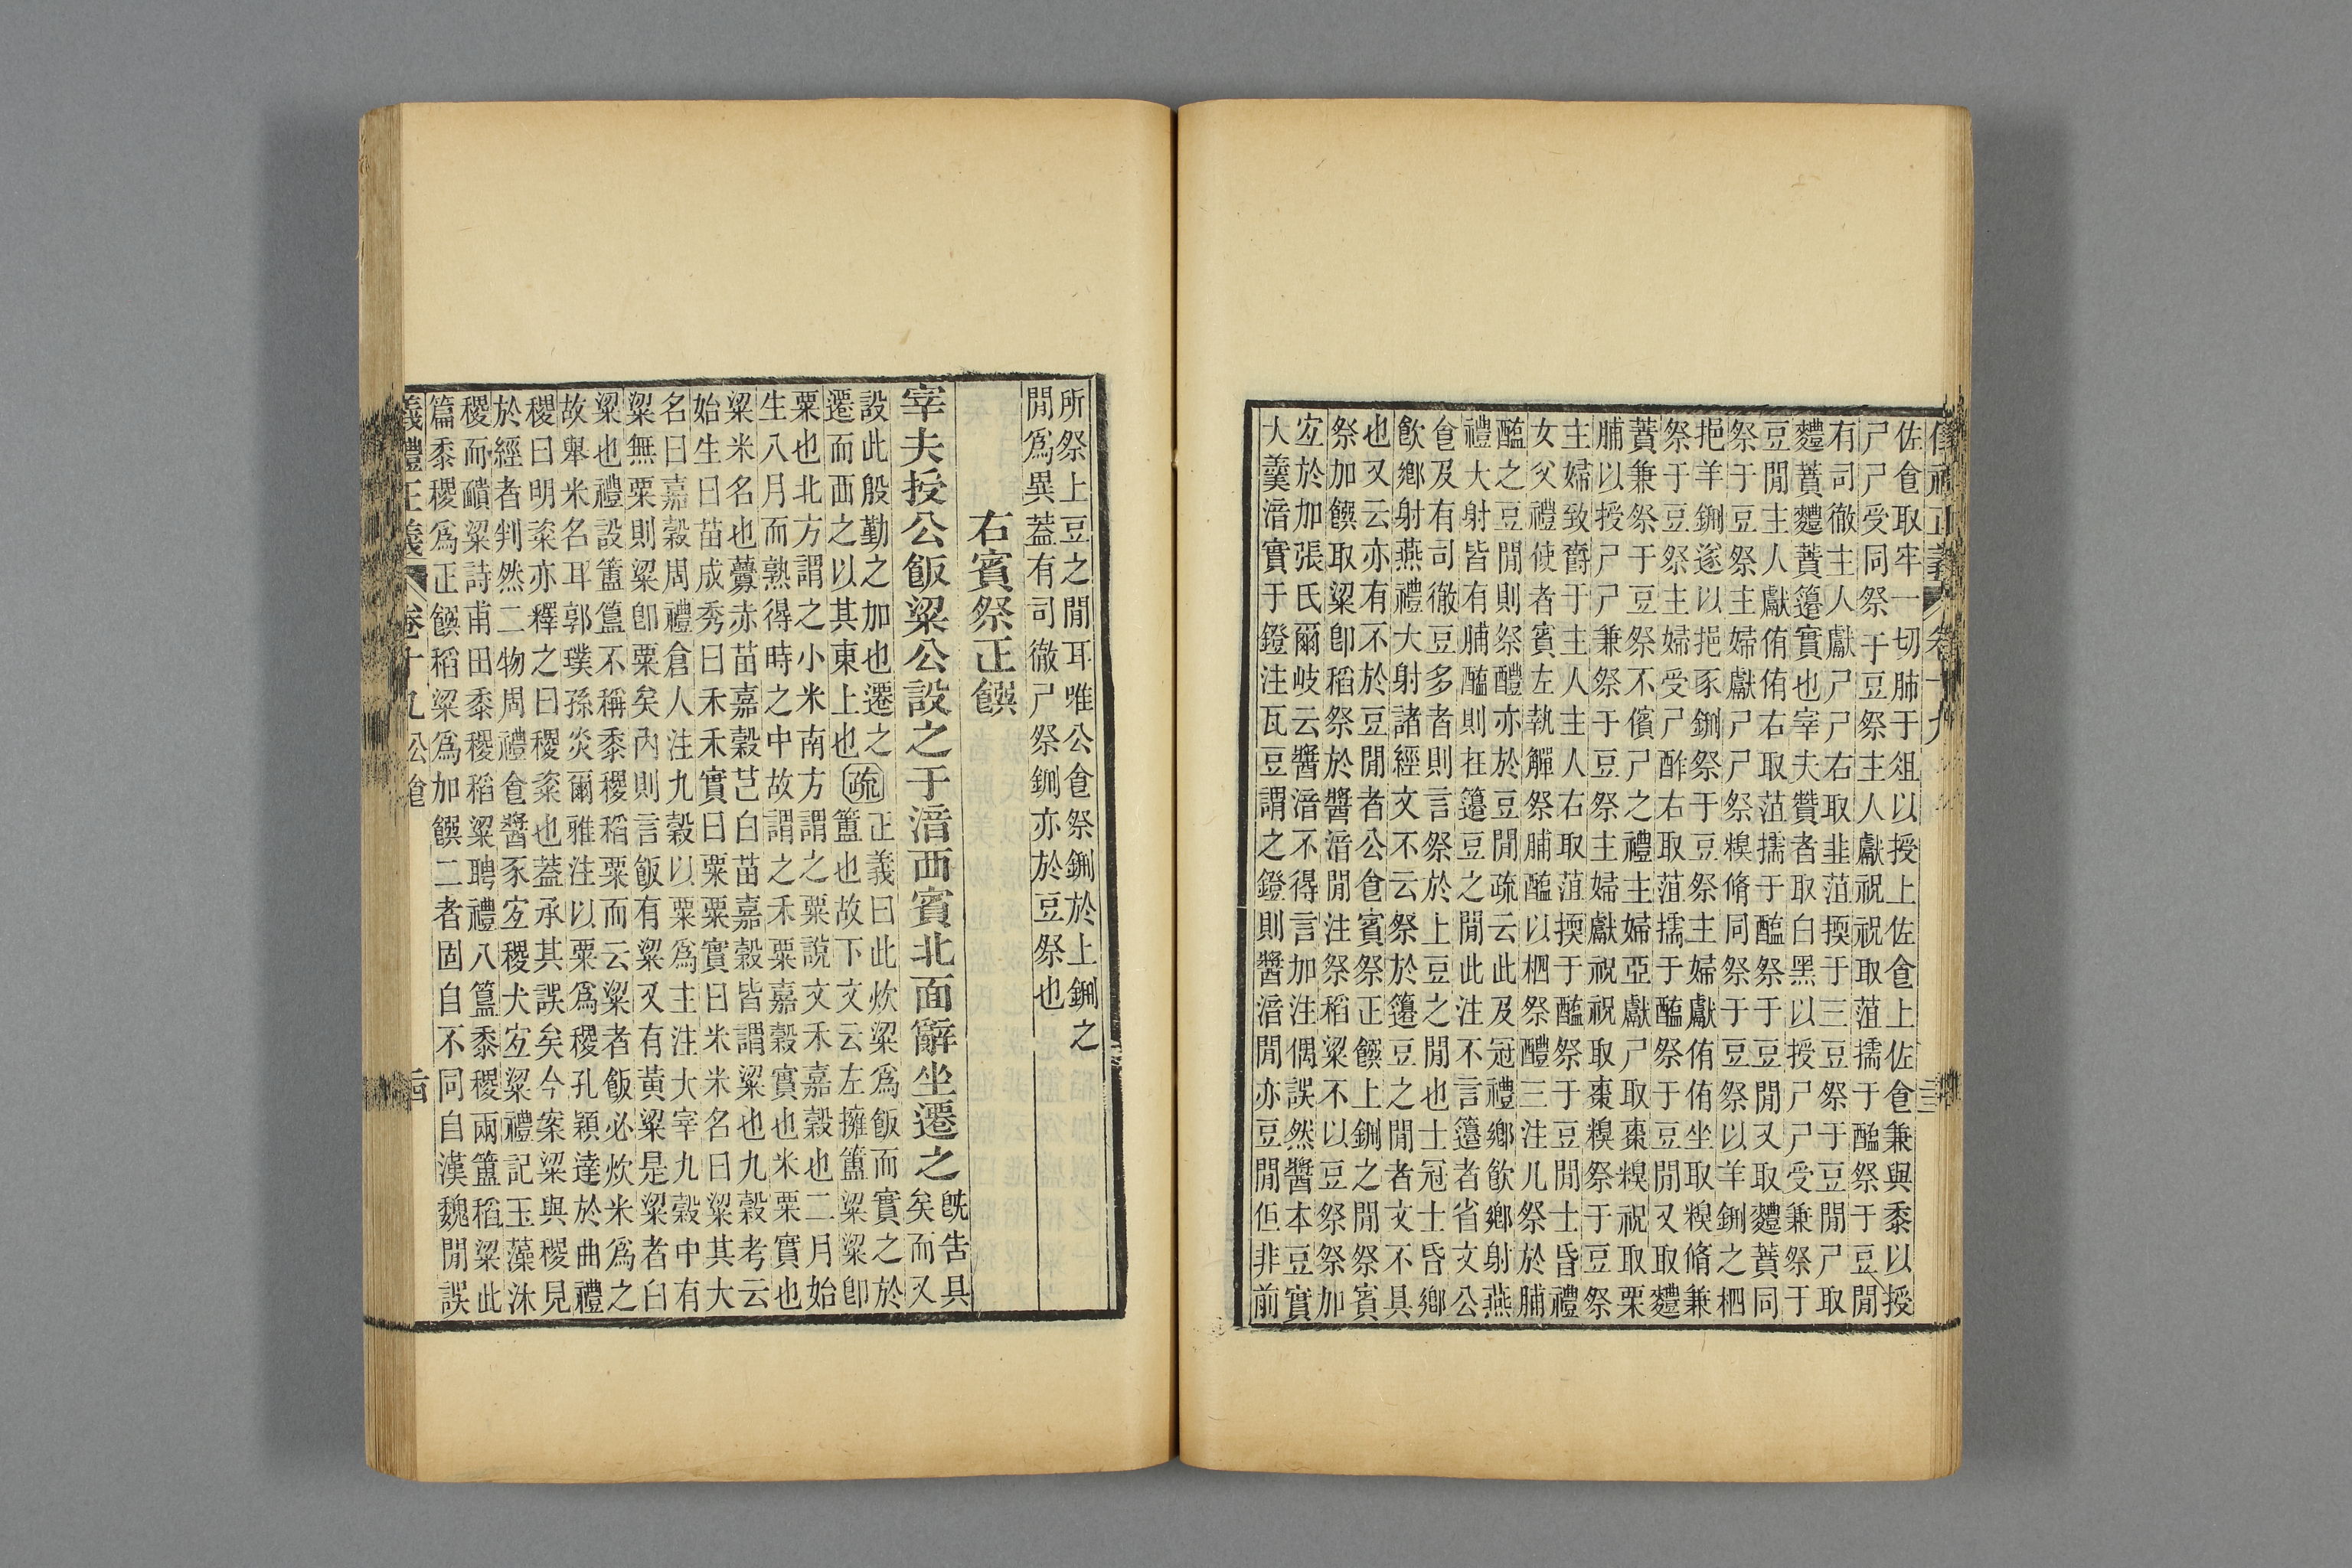 佐食取牢一切肺于俎以授上佐食上佐食兼與黍以授
尸尸受同祭于豆祭主人獻祝祝取菹擩于醢祭于豆閒
有司徹主人獻尸尸右取韭菹擩于三豆祭于豆閒尸取
麷蕡麷蕡籩實也宰夫贊者取白黑以授尸尸受兼祭于
豆閒主人獻侑侑右取菹擩于醢祭于豆閒又取麷蕡同
祭于豆祭主婦獻尸尸祭糗脩同祭于豆祭以羊鉶之柶
挹羊鉶遂以挹豕鉶祭于豆祭主婦獻侑侑坐取糗脩兼
祭于豆祭主婦受尸酢右取菹擩于醢祭于豆閒又取麷
蕡兼祭于豆祭不儐尸之禮主婦亞獻尸取棗糗祝取栗
脯以授尸尸兼祭于豆祭主婦獻祝祝取棗糗祭于豆祭
主婦致爵于主人主人右取菹擩于醢祭于豆閒士昏禮
女父禮使者賓左執觶祭脯醢以柶祭醴三注凡祭於脯
醢之豆閒則祭醴亦於豆閒疏云此及冠禮鄉飲鄉射燕
禮大射皆有脯醢則在籩豆之閒此注不言籩者省文公
食及有司徹豆多者則言祭於上豆之閒也士冠士昏鄉
飲鄉射燕禮大射諸經文不云祭於籩豆之閒者文不具
也又云亦有不於豆閒者公食賓祭正饌上鉶之閒祭賓
祭加饌取粱卽稻祭於醬湆閒注祭稻粱不以豆祭祭加
宜於加張氏爾岐云醬湆不得言加注偶誤然醬本豆實
大羹湆實于鐙注瓦豆謂之鐙則醬湆閒亦豆閒但非前
所祭上豆之閒耳唯公食祭鉶於上鉶之
閒爲異蓋有司徹尸祭鉶亦於豆祭也
右賓祭正饌
宰夫授公飯粱公設之于湆西賓北面辭坐遷之旣告具
矣而又
設此殷勤之加也遷之疏正義曰此炊粱爲飯而實之於
遷而西之以其東上也簠也故下文云左擁簠粱粱卽
粟也北方謂之小米南方謂之粟說文禾嘉穀也二月始
生八月而熟得時之中故謂之禾粟嘉穀實也米粟實也
粱米名也虋赤苗嘉穀芑白苗嘉穀皆謂粱也九穀考云
始生曰苗成秀曰禾禾實曰粟粟實曰米米名曰粱其大
名曰嘉穀周禮倉人注九穀以粟爲主注大宰九穀中有
粱無粟則粱卽粟矣內則言飯有粱又有黃粱是粱者白
粱也禮設簠簋不稱黍稷稻粟而云粱者飯必炊米爲之
故舉米名耳郭璞孫炎爾雅注以粟爲稷孔穎達於曲禮
稷曰明粢亦釋之曰稷粢也蓋承其誤矣今案粱與稷見
於經者判然二物周禮食醫豕宜稷犬宜粱禮記玉藻沐
稷而靧粱詩甫田黍稷稻粱聘禮八簋黍稷兩簠稻粱此
篇黍稷爲正饌稻粱爲加饌二者固自不同自漢魏閒誤